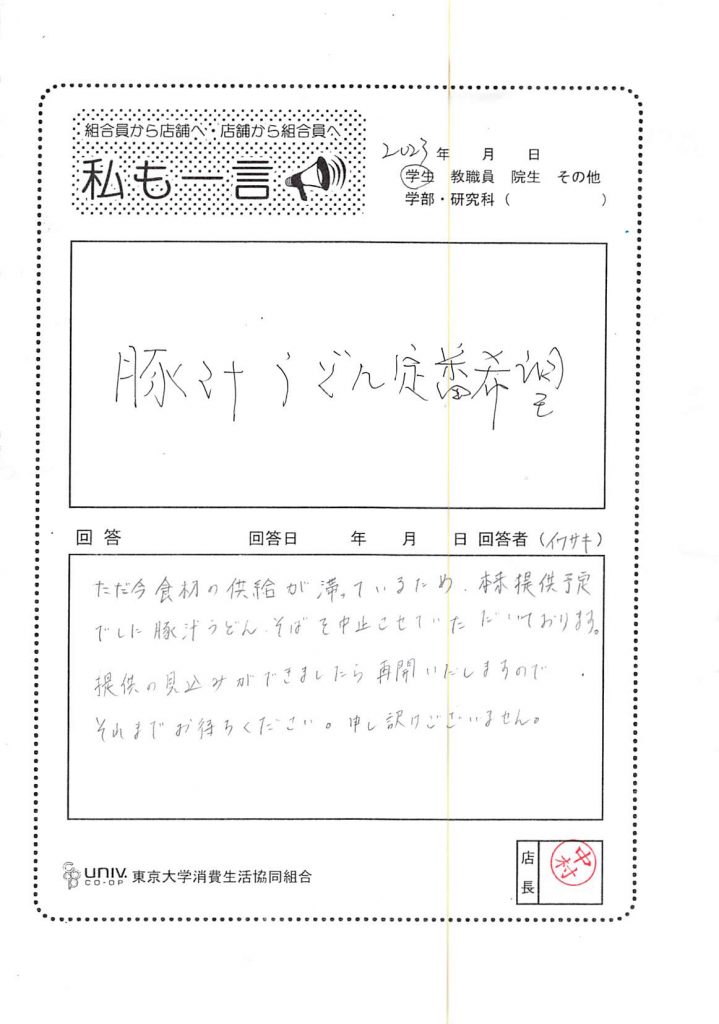 組合員から店舗へ・店舗から組合員へ
私も一言
2023年 月 日
学生 教職員 院生 その他
学部・研究科( )
豚汁うどん定番希望
回答 回答日 年 月 日 回答者(イワサキ)
ただ今食材の供給が滞っているため、本来提供予定
でした豚汁うどん・そばを中止させていただいております。
提供の見込みができましたら再開いたしますので、
それまでお待ちください。申し訳ございません。
UNIV. CO-OP 東京大学消費生活協同組合
店長
中村